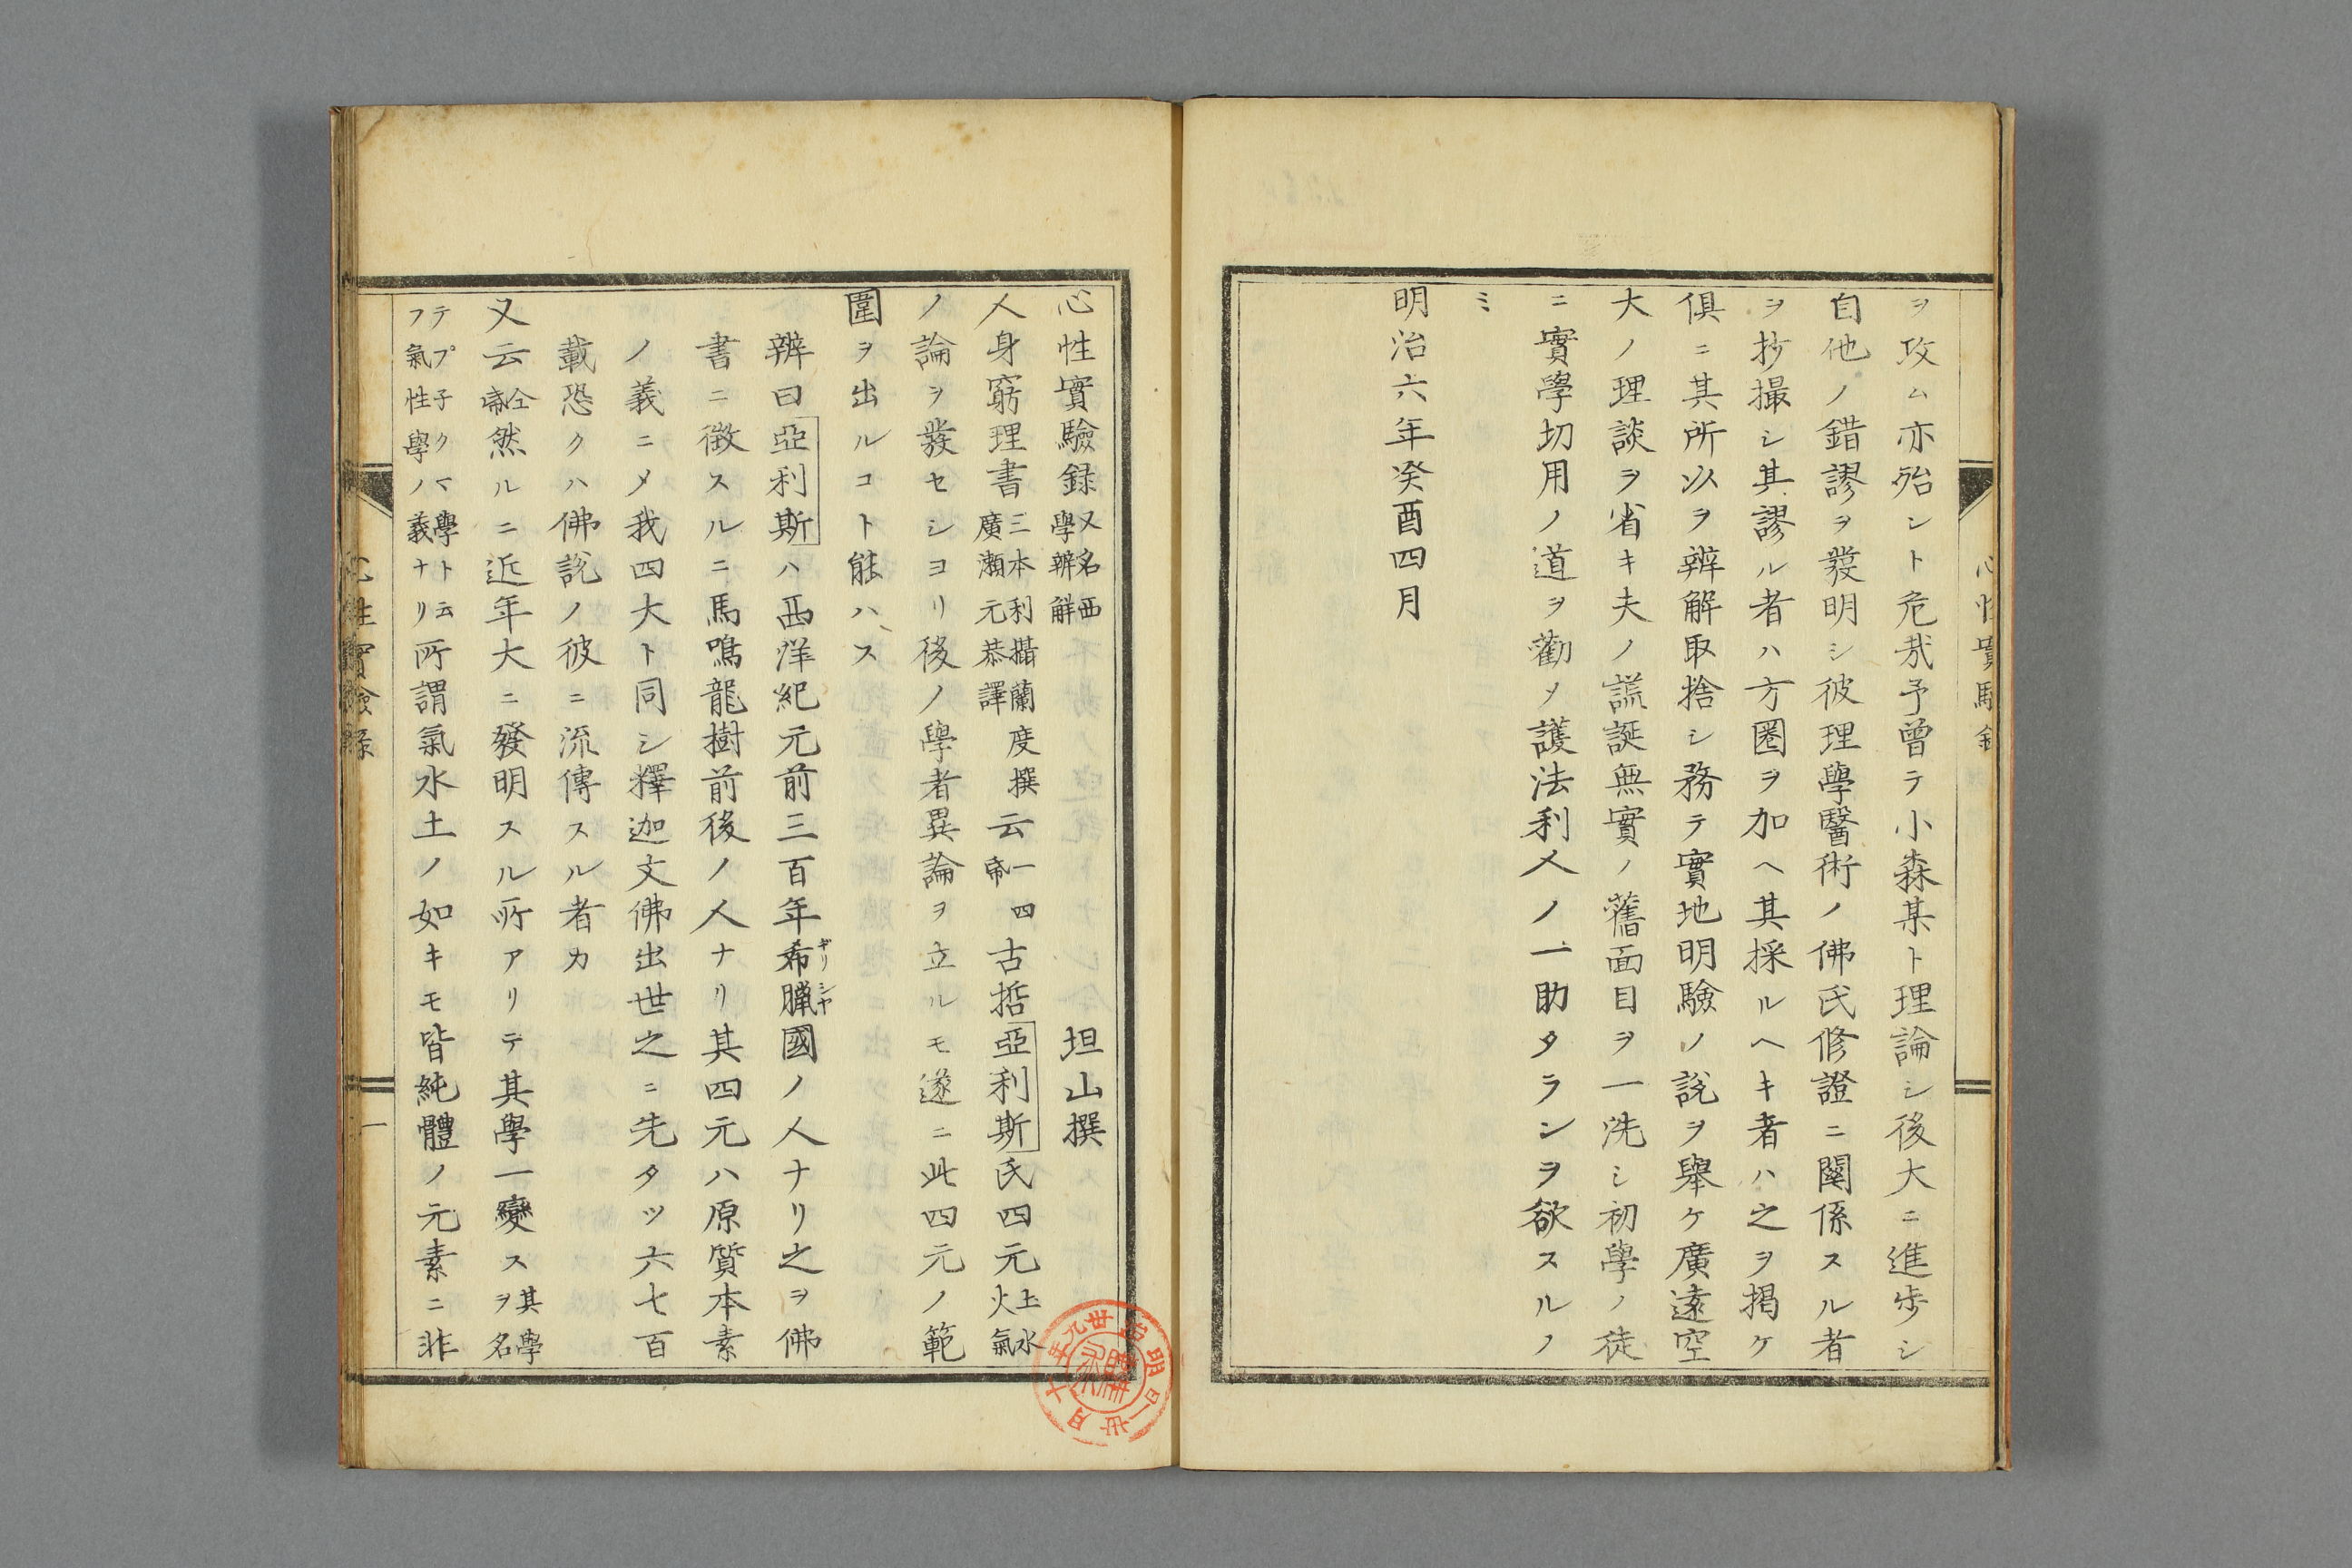 ヲ攻ム亦殆ント危哉予曾テ小森某ト理論シ後大ニ進歩シ
自他ノ錯謬ヲ發明シ彼理學醫術ノ佛氏修證ニ關係スル者
ヲ抄撮シ其謬ル者ハ方圏ヲ加ヘ其採ルヘキ者ハ之ヲ掲ケ
俱ニ其所以ヲ辨解取捨シ務テ實地明驗ノ説ヲ舉ケ廣遠空
大ノ理談ヲ省キ夫ノ謊誕無實ノ舊面目ヲ一洗シ初學ノ徒
ニ實學切用ノ道ヲ勸メ護法利人ノ一助タランヲ欲スルノ
ミ
明治六年癸酉四月
心性實驗録又名西學辨觧 坦山撰
人身窮理書三本利攝蘭度撰廣瀬元恭譯云一四帋古哲亞利斯氏四元土水火氣
ノ論ヲ發セシヨリ後ノ學者異論ヲ立ルモ遂ニ此四元ノ範
圍ヲ出ルコト能ハス
辨曰亞利斯ハ西洋紀元前三百年希臘國ノ人ナリ之ヲ佛
ギリシヤ
書ニ徴スルニ馬鳴龍樹前後ノ人ナリ其四元ハ原質本素
ノ義ニメ我四大ト同シ釋迦文佛出世之ニ先タツ六七百
載恐クハ佛説ノ彼ニ流傳スル者カ
又云仝帋然ルニ近年大ニ發明スル所アリテ其學一變ス其學ヲ名
テプ子クマ學ト云フ氣性學ノ義ナリ所謂氣水土ノ如キモ皆純體ノ元素ニ非
心性實驗録
一